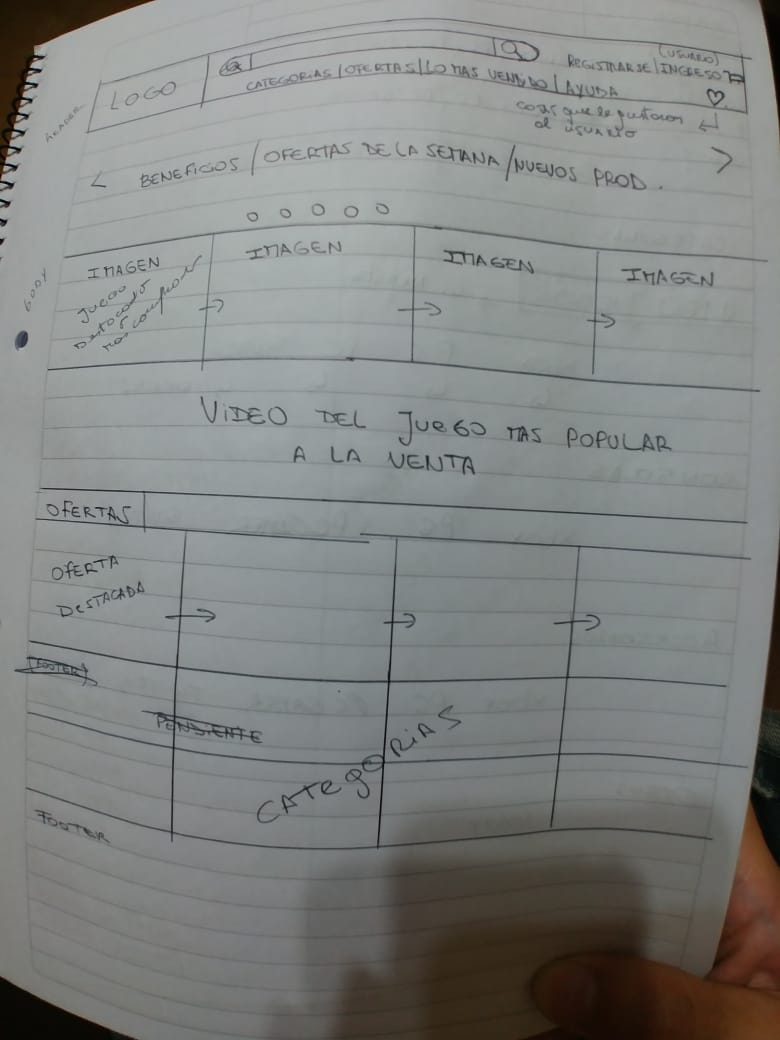 (USUARIO)
REGISTRARSE/INGRESO
LOGO
CATEGORIAS/OFERTAS/LO MAS VENDIDO/AYUDA
HEADER
cosas que le gustaron
al usuario
BENEFICIOS / OFERTAS DE LA SEMANA / NUEVOS PROD.
BODY
IMAGEN
IMAGEN
IMAGEN
IMAGEN
Juego
Destacado
o
mas comprado
VIDEO DEL JUEGO MAS POPULAR
A LA VENTA
OFERTAS
OFERTA
DESTACADA
(FOOTER)
PENDIENTE
CATEgORiAS
FOOTER